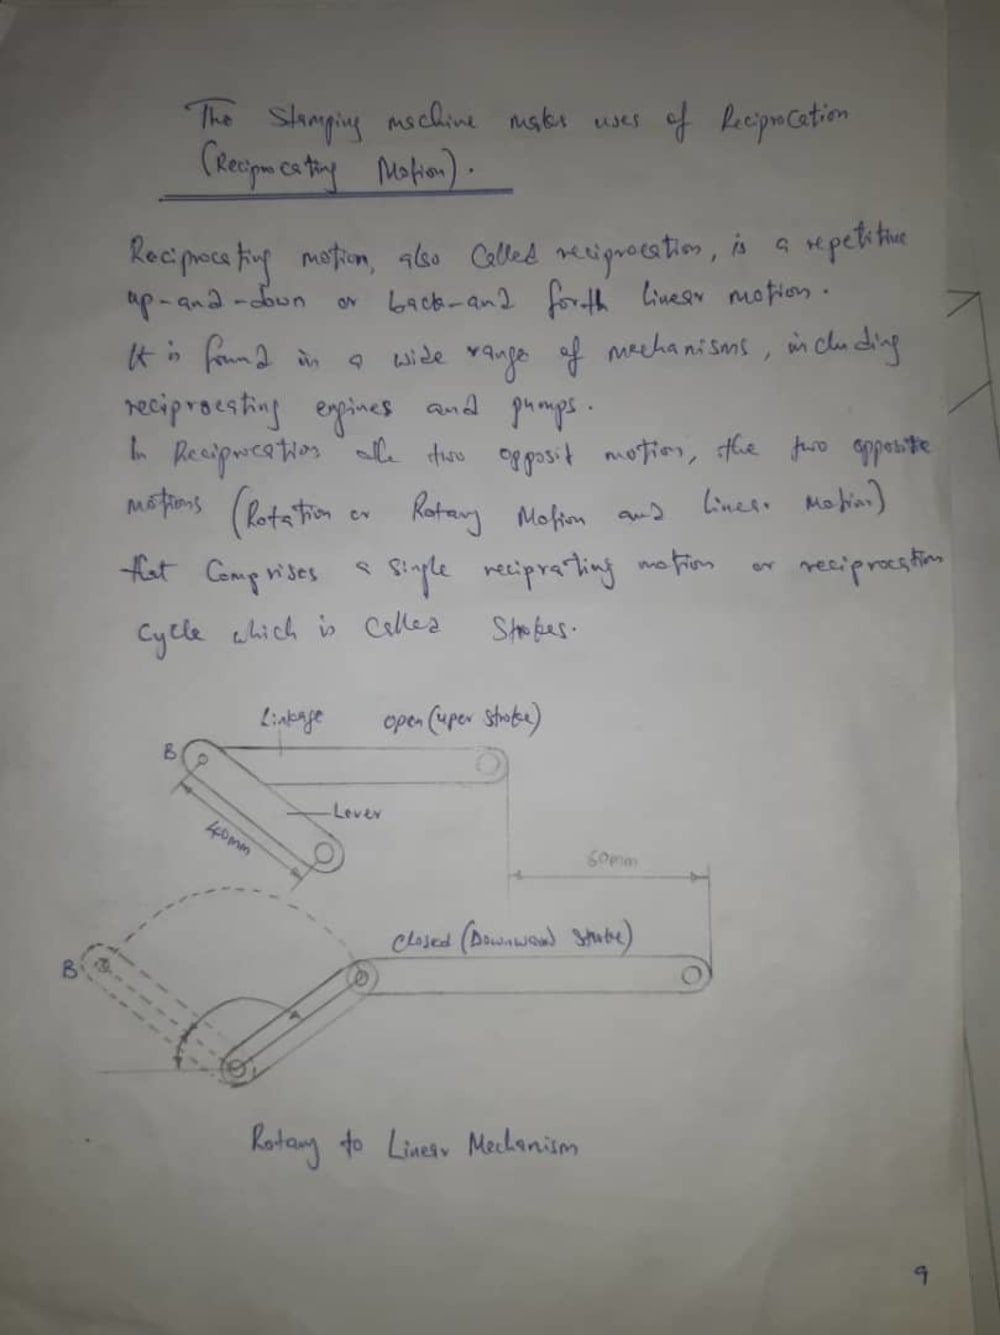 The Stamping machine makes uses of Reciprocation
(Reciprocating Motion).
Reciprocating motion, also Called reciprocation, is a repetitive
up-and-down or back-and forth linear motion.
It is found in a wide range of mechanisms, including
reciprocating engines and pumps.
In Reciprocation the two opposit motion, the two opposite
motions (Rotation or Rotary Motion and Linear Motion)
that Comprises a Single reciprating motion or reciprocation
Cycle which is Called Strokes.
Linkage open (uper stroke)
B
Lever
60mm
Closed (Downward Stroke)
B
Rotary to Linear Mechanism
9